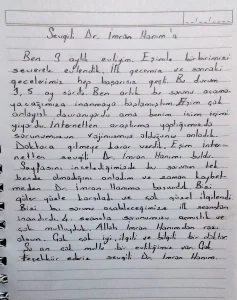 Sevgili Dr. Imran Hanım'a
Ben 9 aylık evliyim. Eşimle birbirimizi
severek evlendik. İlk gecemiz ve sonraki
gecelerimiz hep başarısız geçti. Bu durum
3,5 ay sürdü. Ben artık bu sorunu aşama
yacağımıza inanmaya başlamıştım. Eşim çok
anlayışlı davranıyordu ama benim içim içimi
yiyordu. İnternetten araştırma yaptığımızda
sorunumuzun vajinusmus olduğunu anladık.
Doktora gitmeye karar verdik. Eşim inter
netten sevgili Dr. Imran Hanımı buldu.
Sayfasını incelediğimizde bu sorunun tek
bende olmadığını anladım ve zaman kaybet
meden Dr. Imran Hanıma başvurduk. Bizi
güler yüzle karşıladı ve çok güzel ilgilendi.
Bizi bu sorunu aşabileceğimize ilk seanstan
inandırdı. 4. seansta sorunumuzu aşmıştık ve
çok mutluyduk. Allah Imran Hanımdan razı
olsun. Çok çok iyi, ilgili ve bilgili bir doktor.
Şu an çok mutlu bir evliliğimiz var. Çok
teşekkür ederiz sevgili Dr. Imran Hanım.